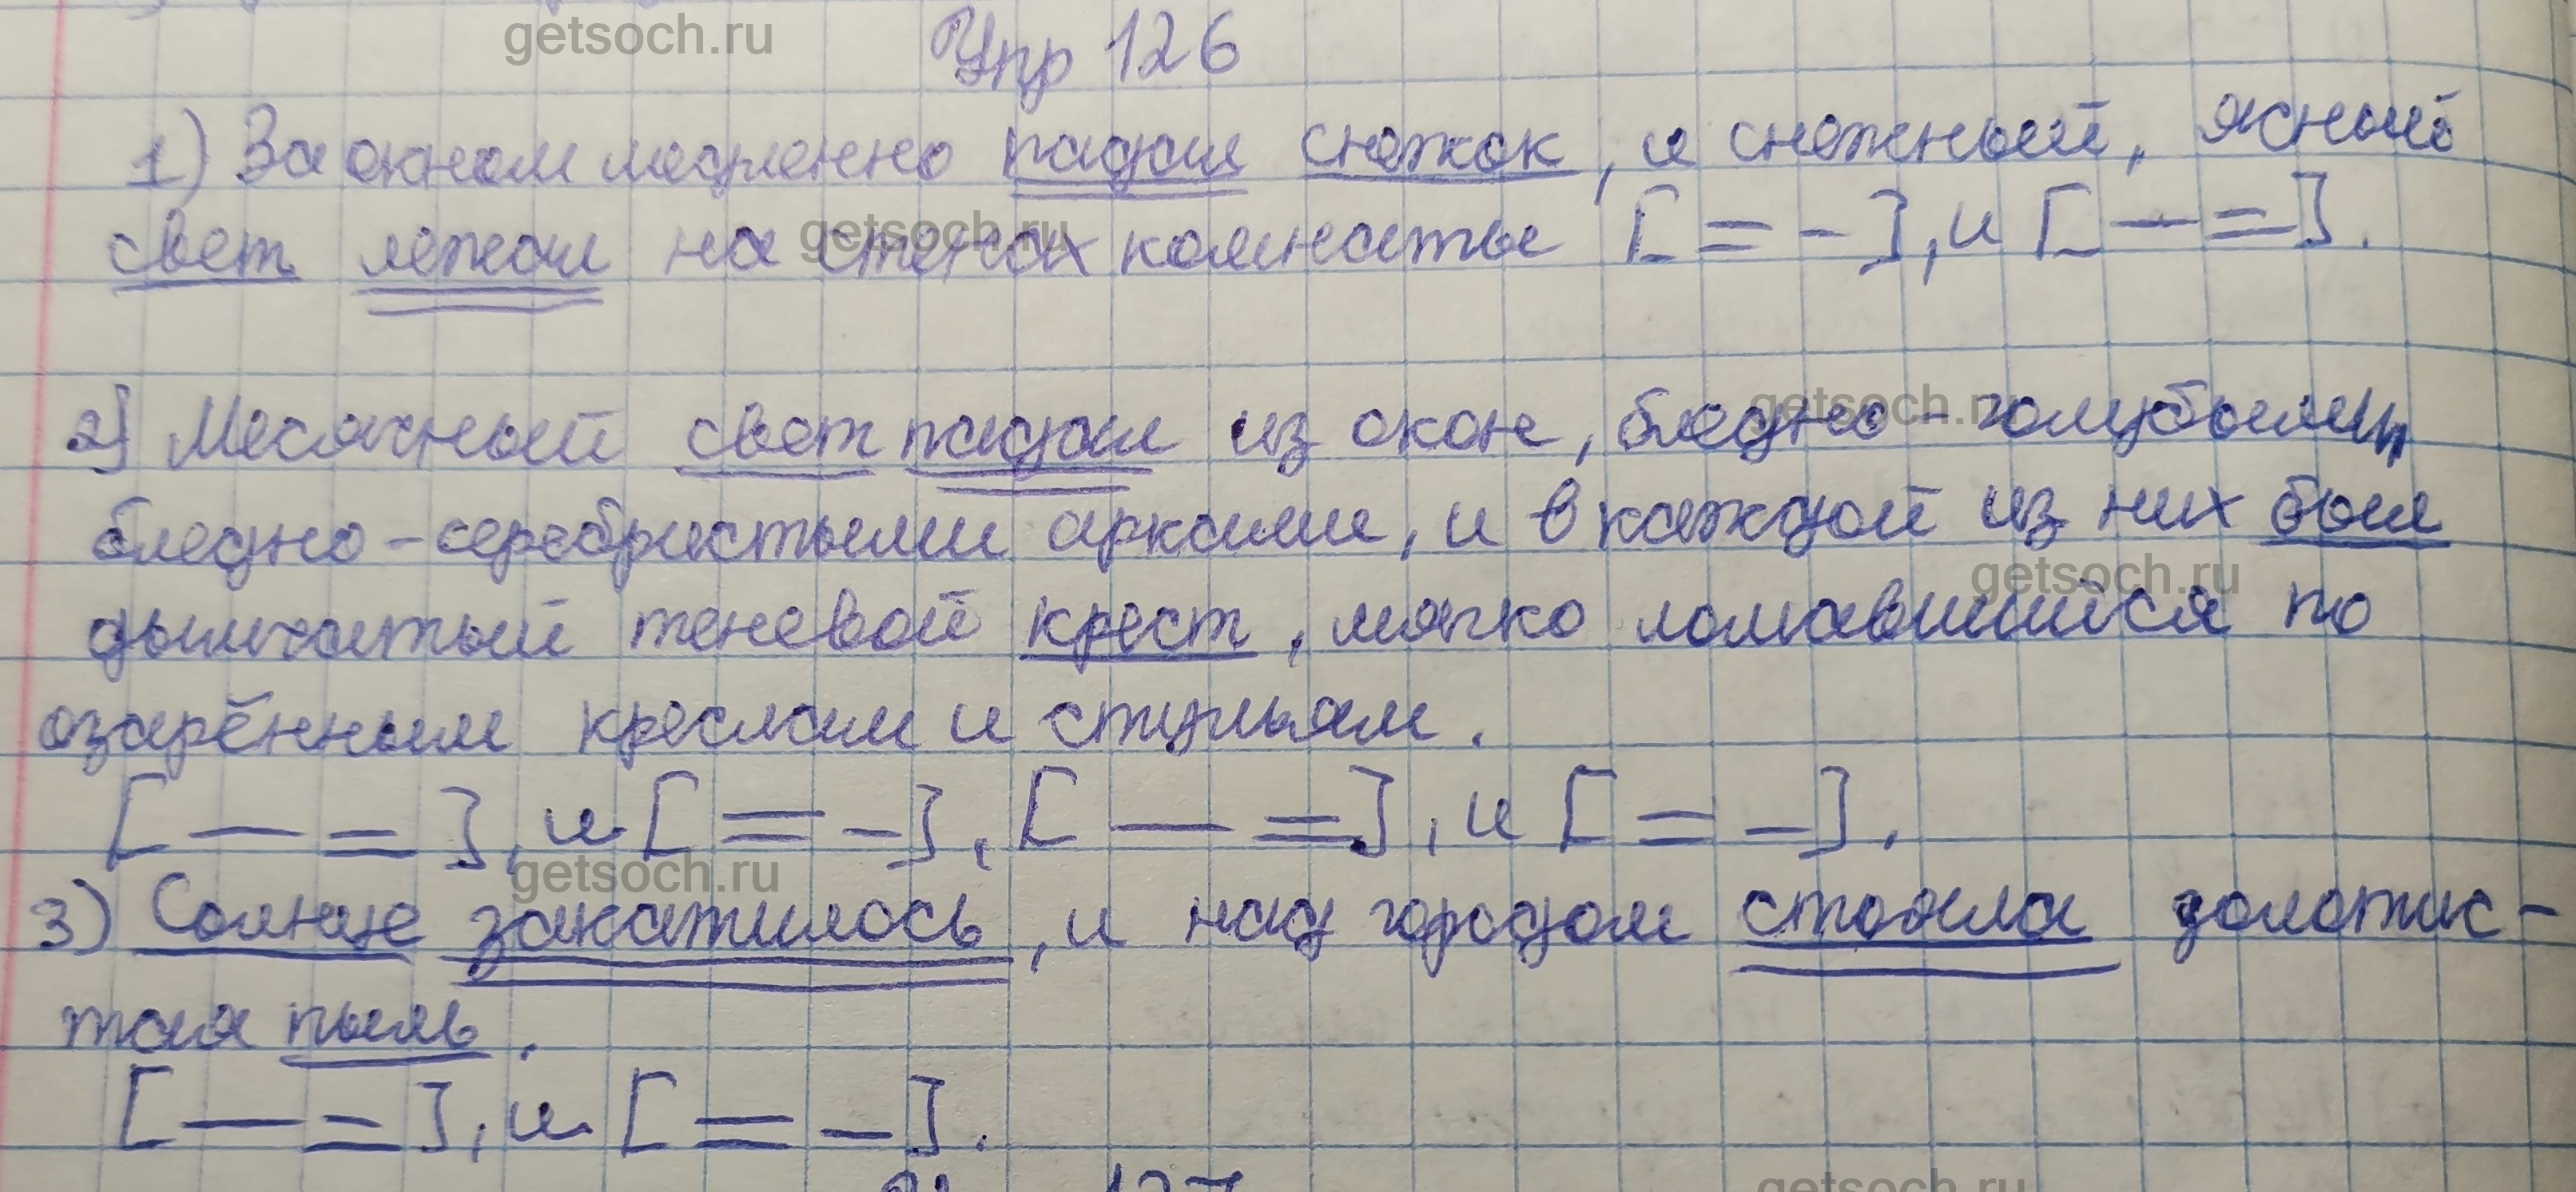 getsoch.ru
Упр 126
1) За окном медленно падал снежок, и снежный, ясный
getsoch.ru
свет лежал на стенах комнаты [ = - ], и [ — = ].
getsoch.ru
2) Месячный свет падал из окон, бледно-голубыми,
бледно-серебристыми арками, и в каждой из них был
getsoch.ru
дымчатый теневой крест, мягко ломавшийся по
озарённым креслам и стульям.
[ — = ], и [ = - ], [ — = ], и [ = - ].
getsoch.ru
3) Солнце закатилось, и над городом стояла золотис-
тая пыль.
[ — = ], и [ = - ].
127
getsoch.ru